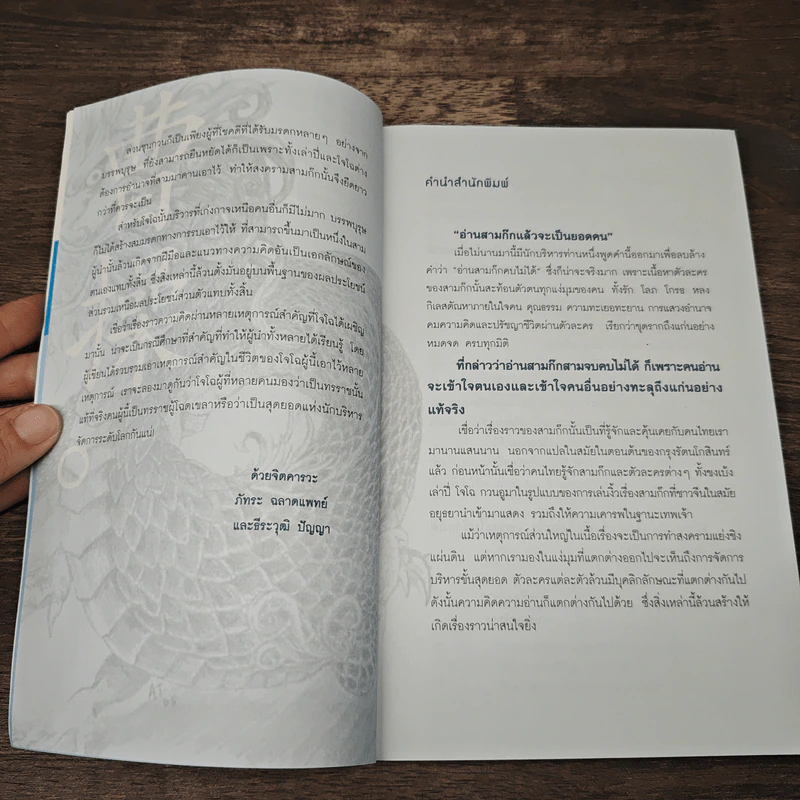 ส่วนซุนกวนก็เป็นเพียงผู้ที่โชคดีที่ได้รับมรดกหลายๆ อย่างจาก
บรรพบุรุษ ที่ยังสามารถยืนหยัดได้ก็เป็นเพราะทั้งเล่าปี่และโจโฉต่าง
ต้องการอำนาจที่สามมาคานเอาไว้ ทำให้สงครามสามก๊กนั้นจึงยืดยาว
กว่าที่ควรจะเป็น
สำหรับโจโฉนั้นบริวารที่เก่งกาจเหนือคนอื่นก็มีไม่มาก บรรพบุรุษ
ก็ไม่ได้สร้างสมมรดกทางการรบเอาไว้ให้ ที่สามารถขึ้นมาเป็นหนึ่งในสาม
ผู้นำนั้นล้วนเกิดจากฝีมือและแนวทางความคิดอันเป็นเอกลักษณ์ของ
ตนเองแทบทั้งสิ้น ซึ่งสิ่งเหล่านี้ล้วนตั้งมั่นอยู่บนพื้นฐานของผลประโยชน์
ส่วนรวมเหนือผลประโยชน์ส่วนตัวแทบทั้งสิ้น
เชื่อว่าเรื่องราวความคิดผ่านหลายเหตุการณ์สำคัญที่โจโฉได้เผชิญ
มานั้น น่าจะเป็นกรณีศึกษาที่สำคัญที่ทำให้ผู้นำทั้งหลายได้เรียนรู้ โดย
ผู้เขียนได้รวบรวมเอาเหตุการณ์สำคัญในชีวิตของโจโฉผู้นี้เอาไว้หลาย
เหตุการณ์ เราจะลองมาดูกันว่าโจโฉผู้ที่หลายคนมองว่าเป็นทรราชนั้น
แท้ที่จริงคนผู้นี้เป็นทรราชผู้โฉดเขลาหรือว่าเป็นสุดยอดแห่งนักบริหาร
จัดการระดับโลกกันแน่!
ด้วยจิตคารวะ
ภัทระ ฉลาดแพทย์
และธีระวุฒิ ปัญญา
คำนำสำนักพิมพ์
“อ่านสามก๊กแล้วจะเป็นยอดคน”
เมื่อไม่นานมานี้มีนักบริหารท่านหนึ่งพูดคำนี้ออกมาเพื่อลบล้าง
คำว่า “อ่านสามก๊กคบไม่ได้” ซึ่งก็น่าจะจริงมาก เพราะเนื้อหาตัวละคร
ของสามก๊กนั้นสะท้อนตัวตนทุกแง่มุมของคน ทั้งรัก โลภ โกรธ หลง
กิเลสตัณหาภายในใจคน คุณธรรม ความทะเยอทะยาน การแสวงอำนาจ
คมความคิดและปรัชญาชีวิตผ่านตัวละคร เรียกว่าขุดรากถึงแก่นอย่าง
หมดจด ครบทุกมิติ
ที่กล่าวว่าอ่านสามก๊กสามจบคบไม่ได้ ก็เพราะคนอ่าน
จะเข้าใจตนเองและเข้าใจคนอื่นอย่างทะลุถึงแก่นอย่าง
แท้จริง
เชื่อว่าเรื่องราวของสามก๊กนั้นเป็นที่รู้จักและคุ้นเคยกับคนไทยเรา
มานานแสนนาน นอกจากแปลในสมัยในตอนต้นของกรุงรัตนโกสินทร์
แล้ว ก่อนหน้านั้นเชื่อว่าคนไทยรู้จักสามก๊กและตัวละครต่างๆ ทั้งขงเบ้ง
เล่าปี่ โจโฉ กวนอูมาในรูปแบบของการเล่นงิ้วเรื่องสามก๊กที่ชาวจีนในสมัย
อยุธยานำเข้ามาแสดง รวมถึงให้ความเคารพในฐานะเทพเจ้า
แม้ว่าเหตุการณ์ส่วนใหญ่ในเนื้อเรื่องจะเป็นการทำสงครามแย่งชิง
แผ่นดิน แต่หากเรามองในแง่มุมที่แตกต่างออกไปจะเห็นถึงการจัดการ
บริหารขั้นสุดยอด ตัวละครแต่ละตัวล้วนมีบุคลิกลักษณะที่แตกต่างกันไป
ดังนั้นความคิดความอ่านก็แตกต่างกันไปด้วย ซึ่งสิ่งเหล่านี้ล้วนสร้างให้
เกิดเรื่องราวน่าสนใจยิ่ง